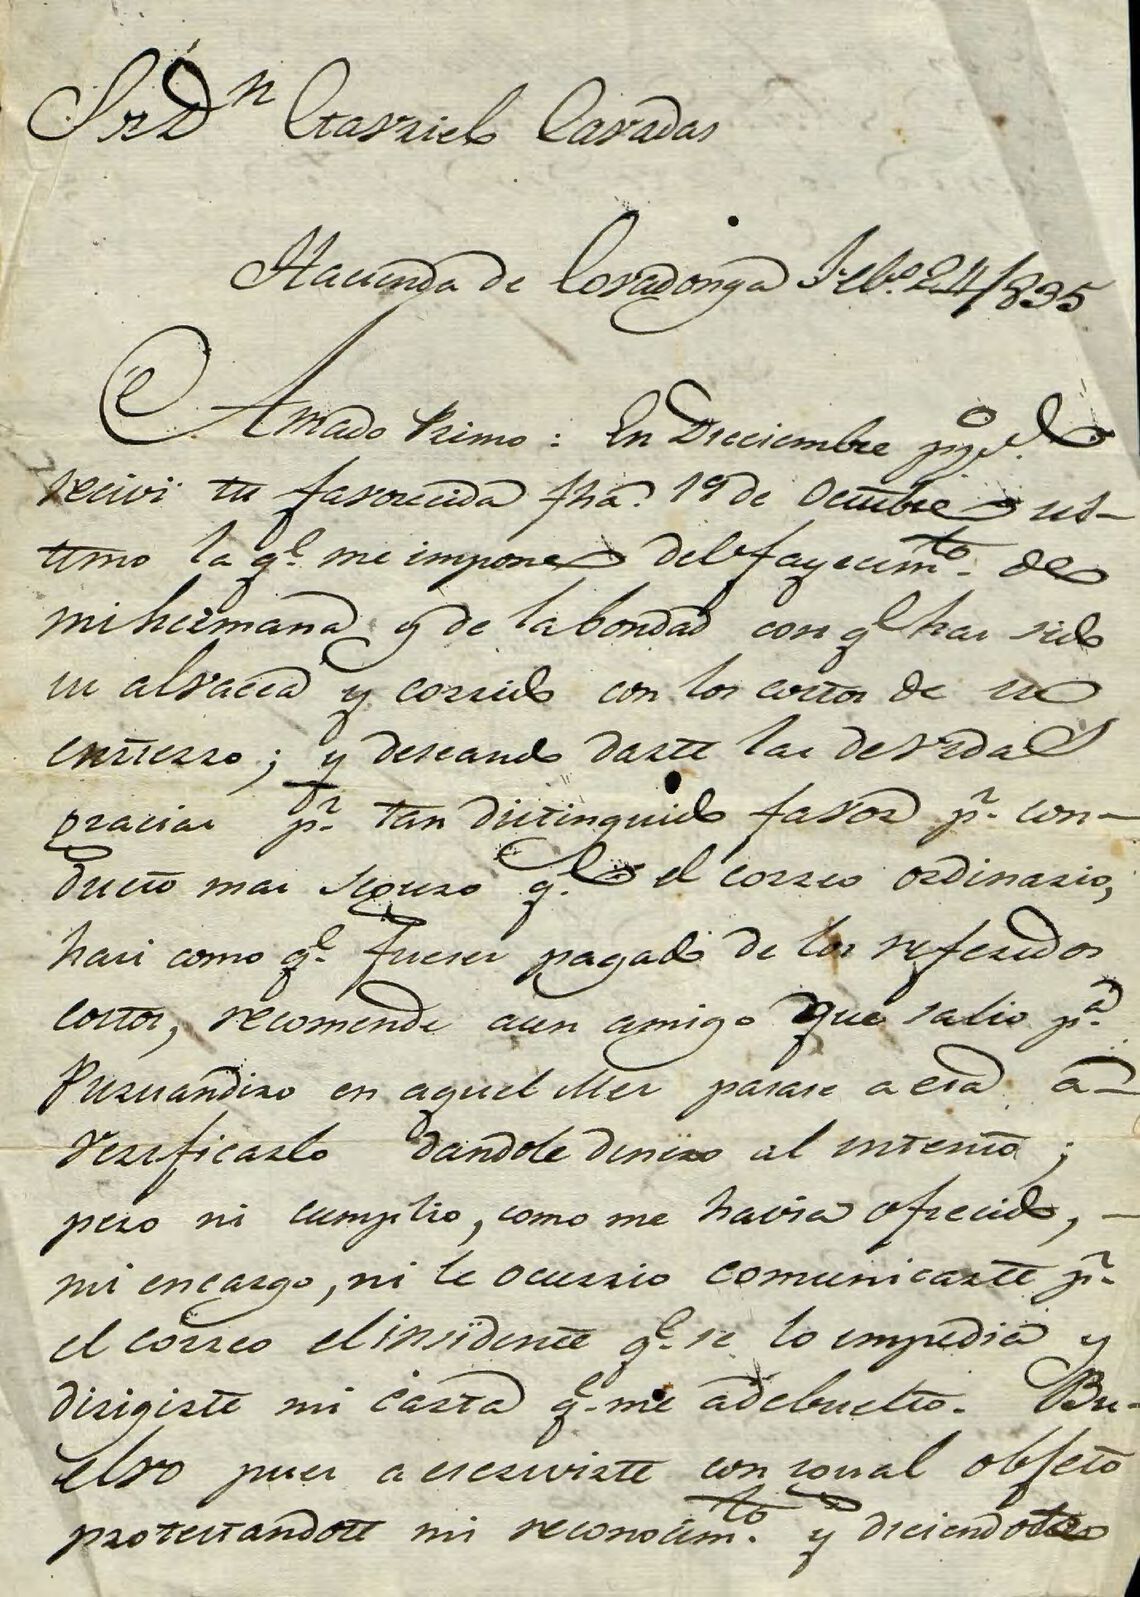 Sr Dn Gavriel Cavadas
Hacienda de Covadonga Feb.o 24/835
Amado Primo: En Dieciembre ppo.
recivi tu favorecida fha. 19 de Octubre ul-
timo la q.e me impone del fayecim.to de
mi hermana y de la bondad con q.e has sido
su alvacea y corrido con los costos de su
entierro; y deseando darte las devidas
gracias p.r tan distinguido favor p.r con-
ducto mas seguro q.e el correo ordinario,
hasi como q.e fueses pagado de los referidos
costos, recomende aun amigo que salio p.a
Puruandiro en aquel Mes pasase a esa a
verificarlo dandole dinero al intento;
pero ni cumplio, como me havia ofrecido,
mi encargo, ni le ocurrio comunicarte p.r
el correo el insidente q.e se lo impedia y
dirigirte mi carta q.e me adebuelto. Bu-
elvo pues a escrivirte con igual obgeto
protestandote mi reconocim.to y diciendote